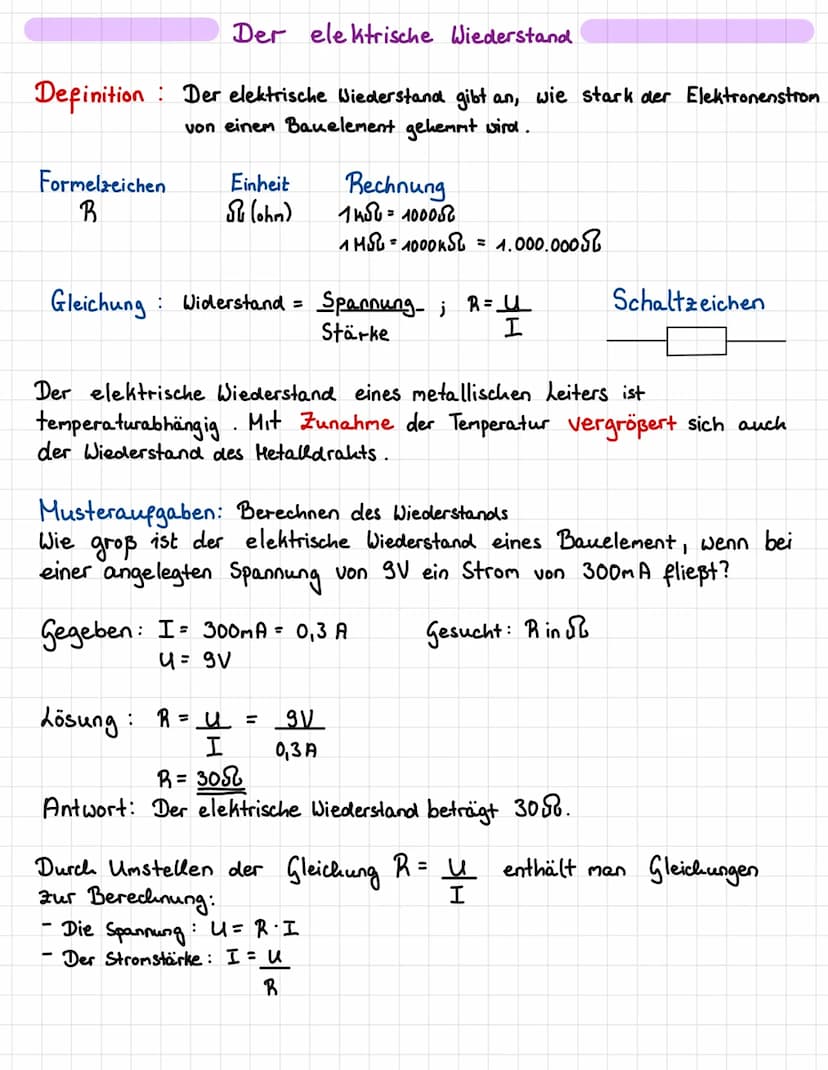 Der elektrische Wiederstand
Definition : Der elektrische Wiederstand gibt an, wie stark der Elektronenstrom
von einem Bauelement gehemmt wird.
Formelzeichen Einheit Rechnung
R Ω (ohm) 1kΩ = 1000Ω
1 MΩ = 1000kΩ = 1.000.000Ω
Gleichung : Widerstand = Spannung ; R = U
Stärke I
Schaltzeichen
Der elektrische Wiederstand eines metallischen Leiters ist
temperaturabhängig . Mit Zunahme der Temperatur vergrößert sich auch
der Wiederstand des Metalldrahts .
Musteraufgaben: Berechnen des Wiederstands
Wie groß ist der elektrische Wiederstand eines Bauelement, wenn bei
einer angelegten Spannung von 9V ein Strom von 300mA fließt?
Gegeben: I = 300mA = 0,3 A Gesucht: R in Ω
U = 9V
Lösung : R = U = 9V
I 0,3A
R = 30Ω
Antwort: Der elektrische Wiederstand beträgt 30Ω.
Durch Umstellen der Gleichung R = U enthält man Gleichungen
I
zur Berechnung:
- Die Spannung : U = R · I
- Der Stromstärke : I = U
R